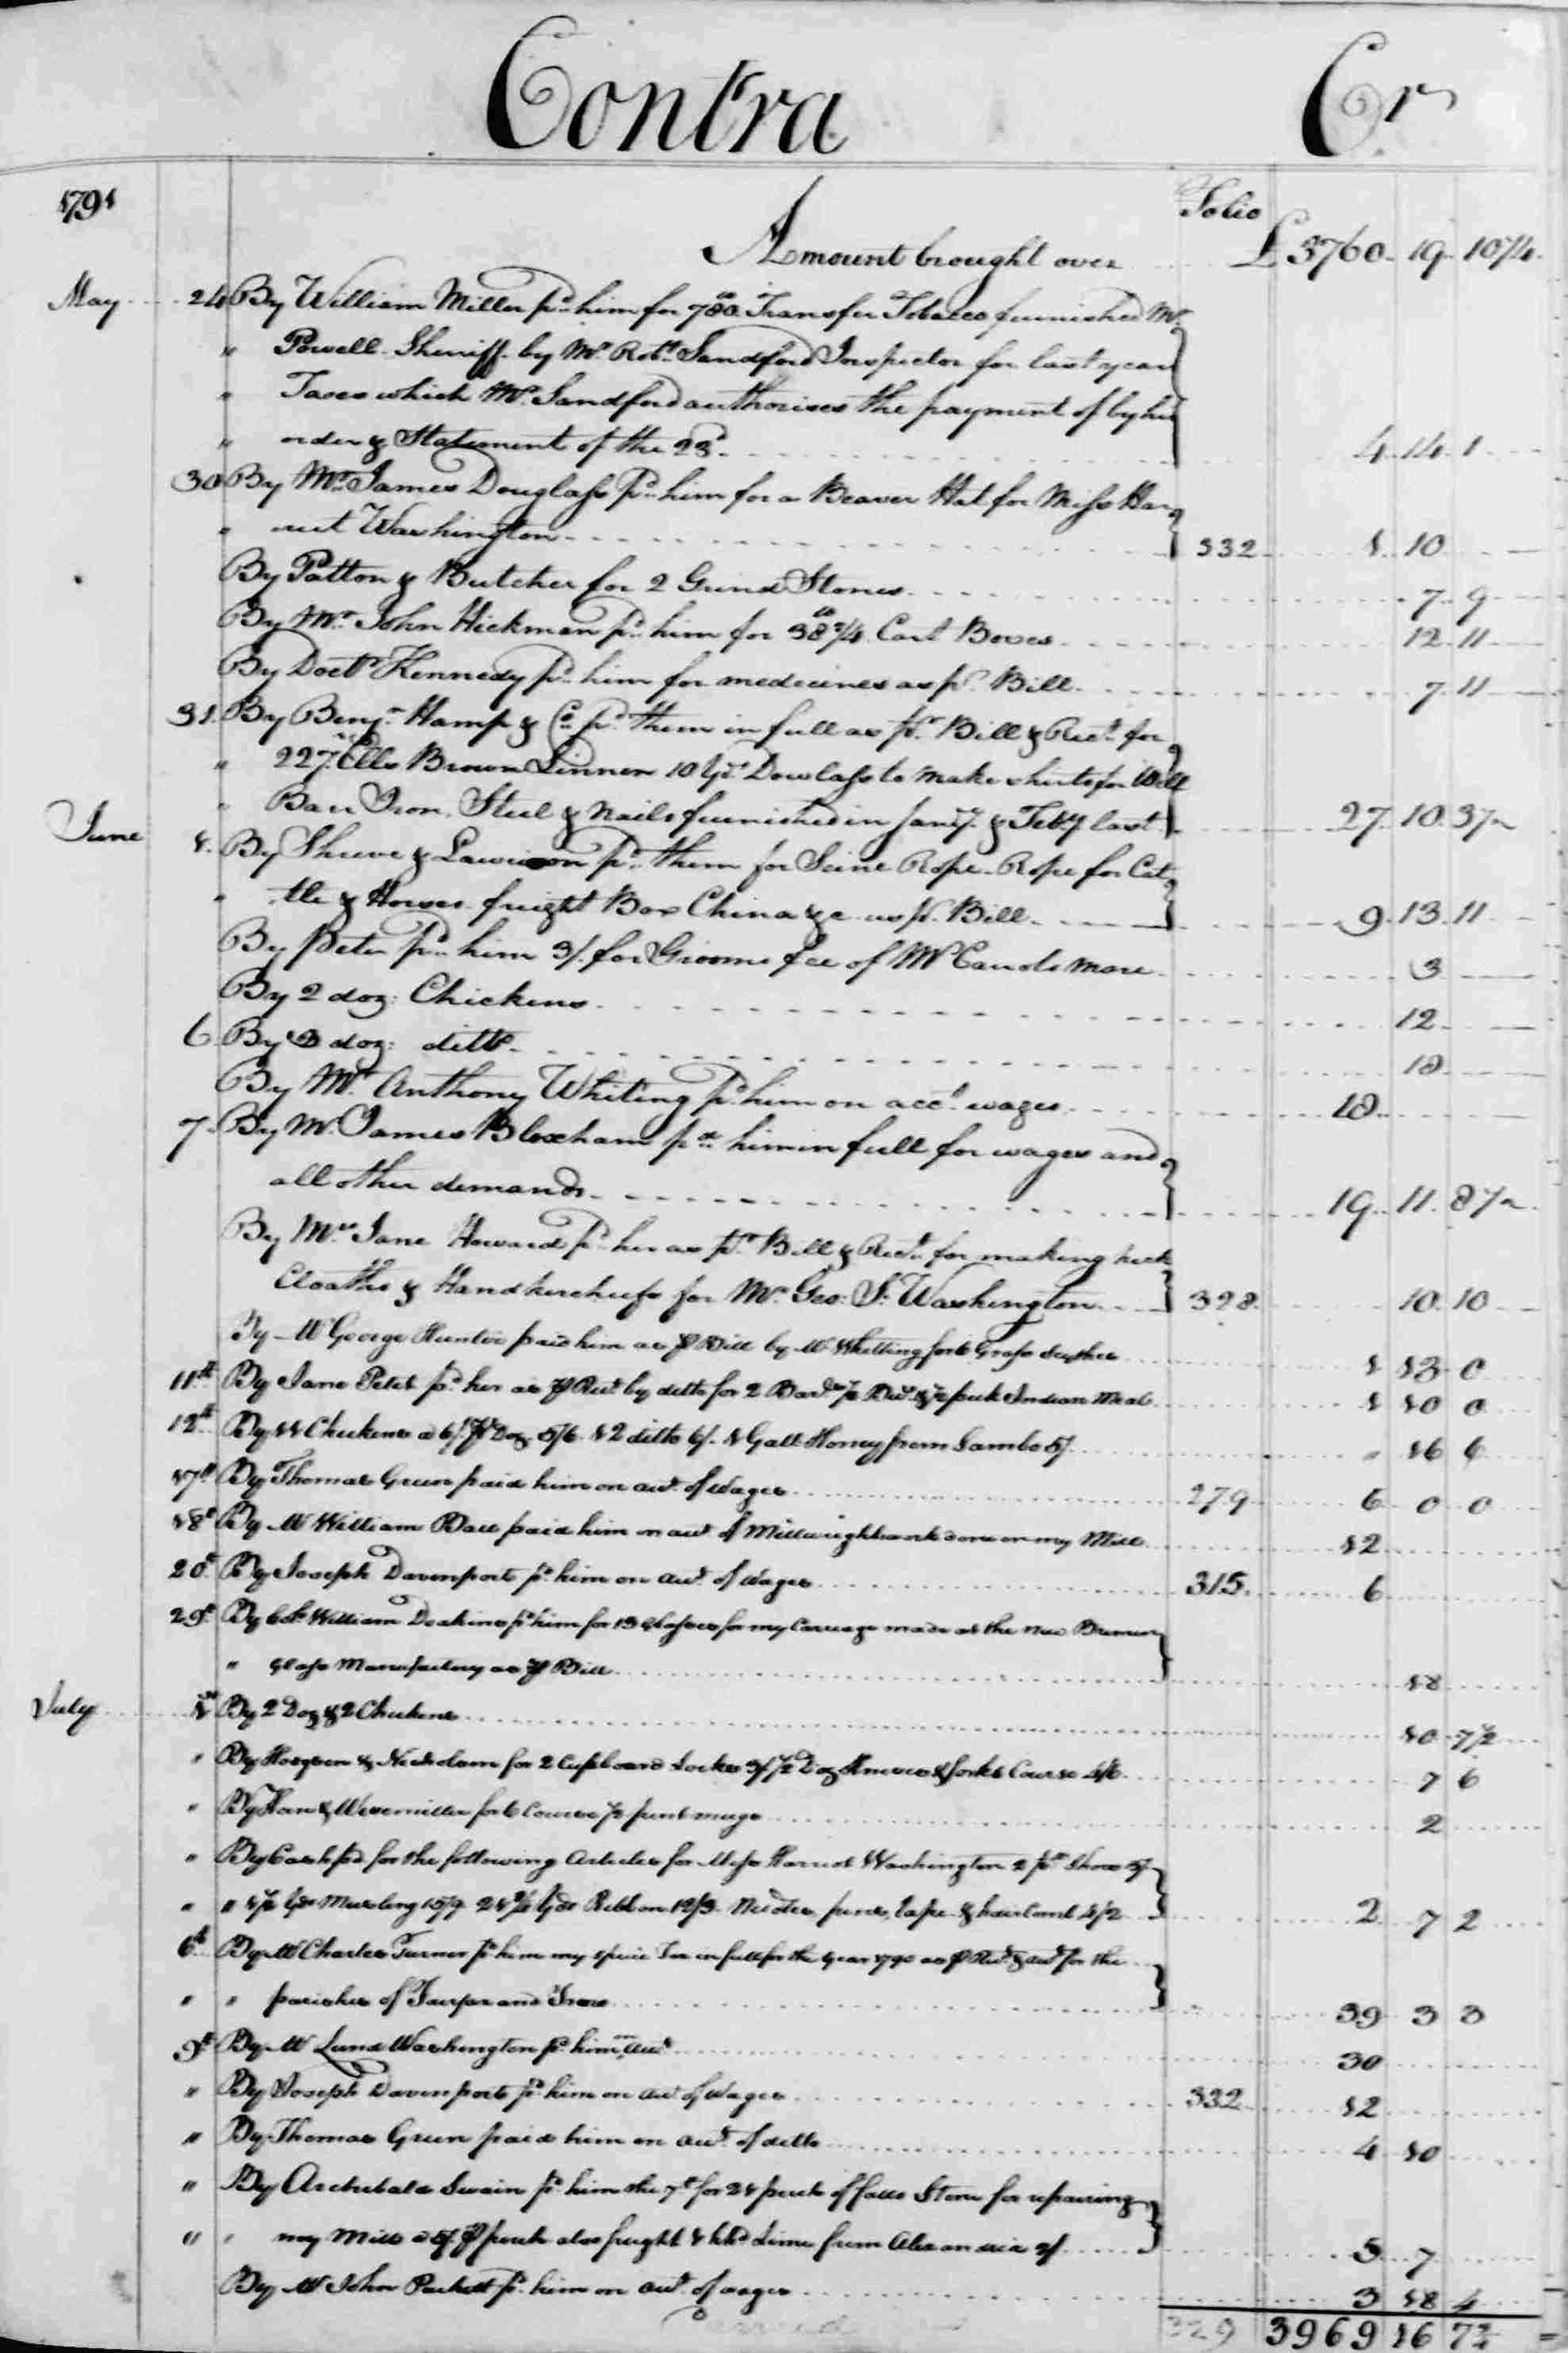 Contra Cr
1791 Folio
Amount brought over £ 3760 19 10 1/4
May 24 By William Miller pd him for 780 lb Transfer Tobacco furnished Mr
" Powell Sheriff by Mr Robt Sandford Inspector for last year
" Taxes which Mr Sandford authorises the payment of by his
" order & Statement of the 23d 4 14 1
30 By Mr James Douglass pd him for a Beaver Hat for Miss Har
" riet Washington 332 1 10
By Patton & Butcher for 2 Grind Stones 7 9
By Mr John Hickman pd him for 38 3/4 lb Cart Boxes 12 11
By Doctr Kennedy pd him for medicines as pr Bill 7 11
31 By Benjn Hamp & Co pd them in full as pr Bill & Rect for
" 227 Ells Brown Linnen 10 Yds Dowlass to make shirts for Will
" Barr Iron, Steel & Nails furnished in Jany & Feby last 27 10 3 1/2
June 1 By Shreve & Lawrason pd them for Seine Rope Rope for Cat
" tle & Horses freight Box China &c as pr Bill 9 13 11
By Peter pd him 3/ for Grooms fee of Mare 3
By 2 doz: Chickens 12
6 By 3 doz: ditto 18
By Mr Anthony Whiting pd him on acct wages 18
7 By Mr James Bloxham pd him in full for wages and
all other demands 19 11 8 1/2
By Mrs Jane Howard pd her as pr Bill & Rect for making neck
Cloaths & Handkerchiefs for Mr Geo: S: Washington 328 10 10
By Mr George Hunter paid him as pr Bill by Mr Whitting for 6 Grass Scythes 1 13 0
11th By Jane Petit pd her as pr Rect by ditto for 2 Barls 1/2 peck Indian Meal 1 10 0
12th By 11 Chickens @ 6/ pr Doz 5/6 12 ditto 6/. 1 Gall Honey from Sambo 5/ " 16 6
17th By Thomas Green paid him on acct of Wages 279 6 0 0
18th By Mr William Ball paid him on acct of Millwrights work done on my Mill 12
20th By Joseph Davenport pd him on acct of Wages 315 6
29th By Colo William Deakins pd him for 13 Glasses for my Carriage made at the New Bremen
" Glass Manufactory as pr Bill 18
July 1st By 2 Doz & 2 Chickens 10 7 1/2
" By Hodgson & Nickolson for 2 Cupboard Locks 3/ 1/2 Doz Knives & forks Coarse 4/6 7 6
" By for 6 Coarse 1/2 pint mugs 2
" By Cash pd for the following Articles for Miss Harriot Washington 2 pr Shoes
" " Yds Musling 15/9 Yds Ribbon 12/3 Needles, pins, tape & hair Comb 4/2 2 7 2
6th By Mr Charles Turner pd him my specie Tax in full for the Year 1790 as pr Rect & acct for the
" " parishes of Fairfax and Truro 39 3 3
9th By Mr Lund Washington pd him on acct 30
" By Joseph Davenport pd him on acct of Wages 332 12
" By Thomas Green paid him on acct of ditto 4 10
" By Archibald Swain pd him the 7th for 21 perch of falls Stone for repairing
" " my Mill @ 5/ pr perch also freight 1 hhd Lime from Alexandria 2/ 5 7
By Mr John Puckett pd him on acct of wages 3 18 4
Carried 329 3969 16 7 3/4